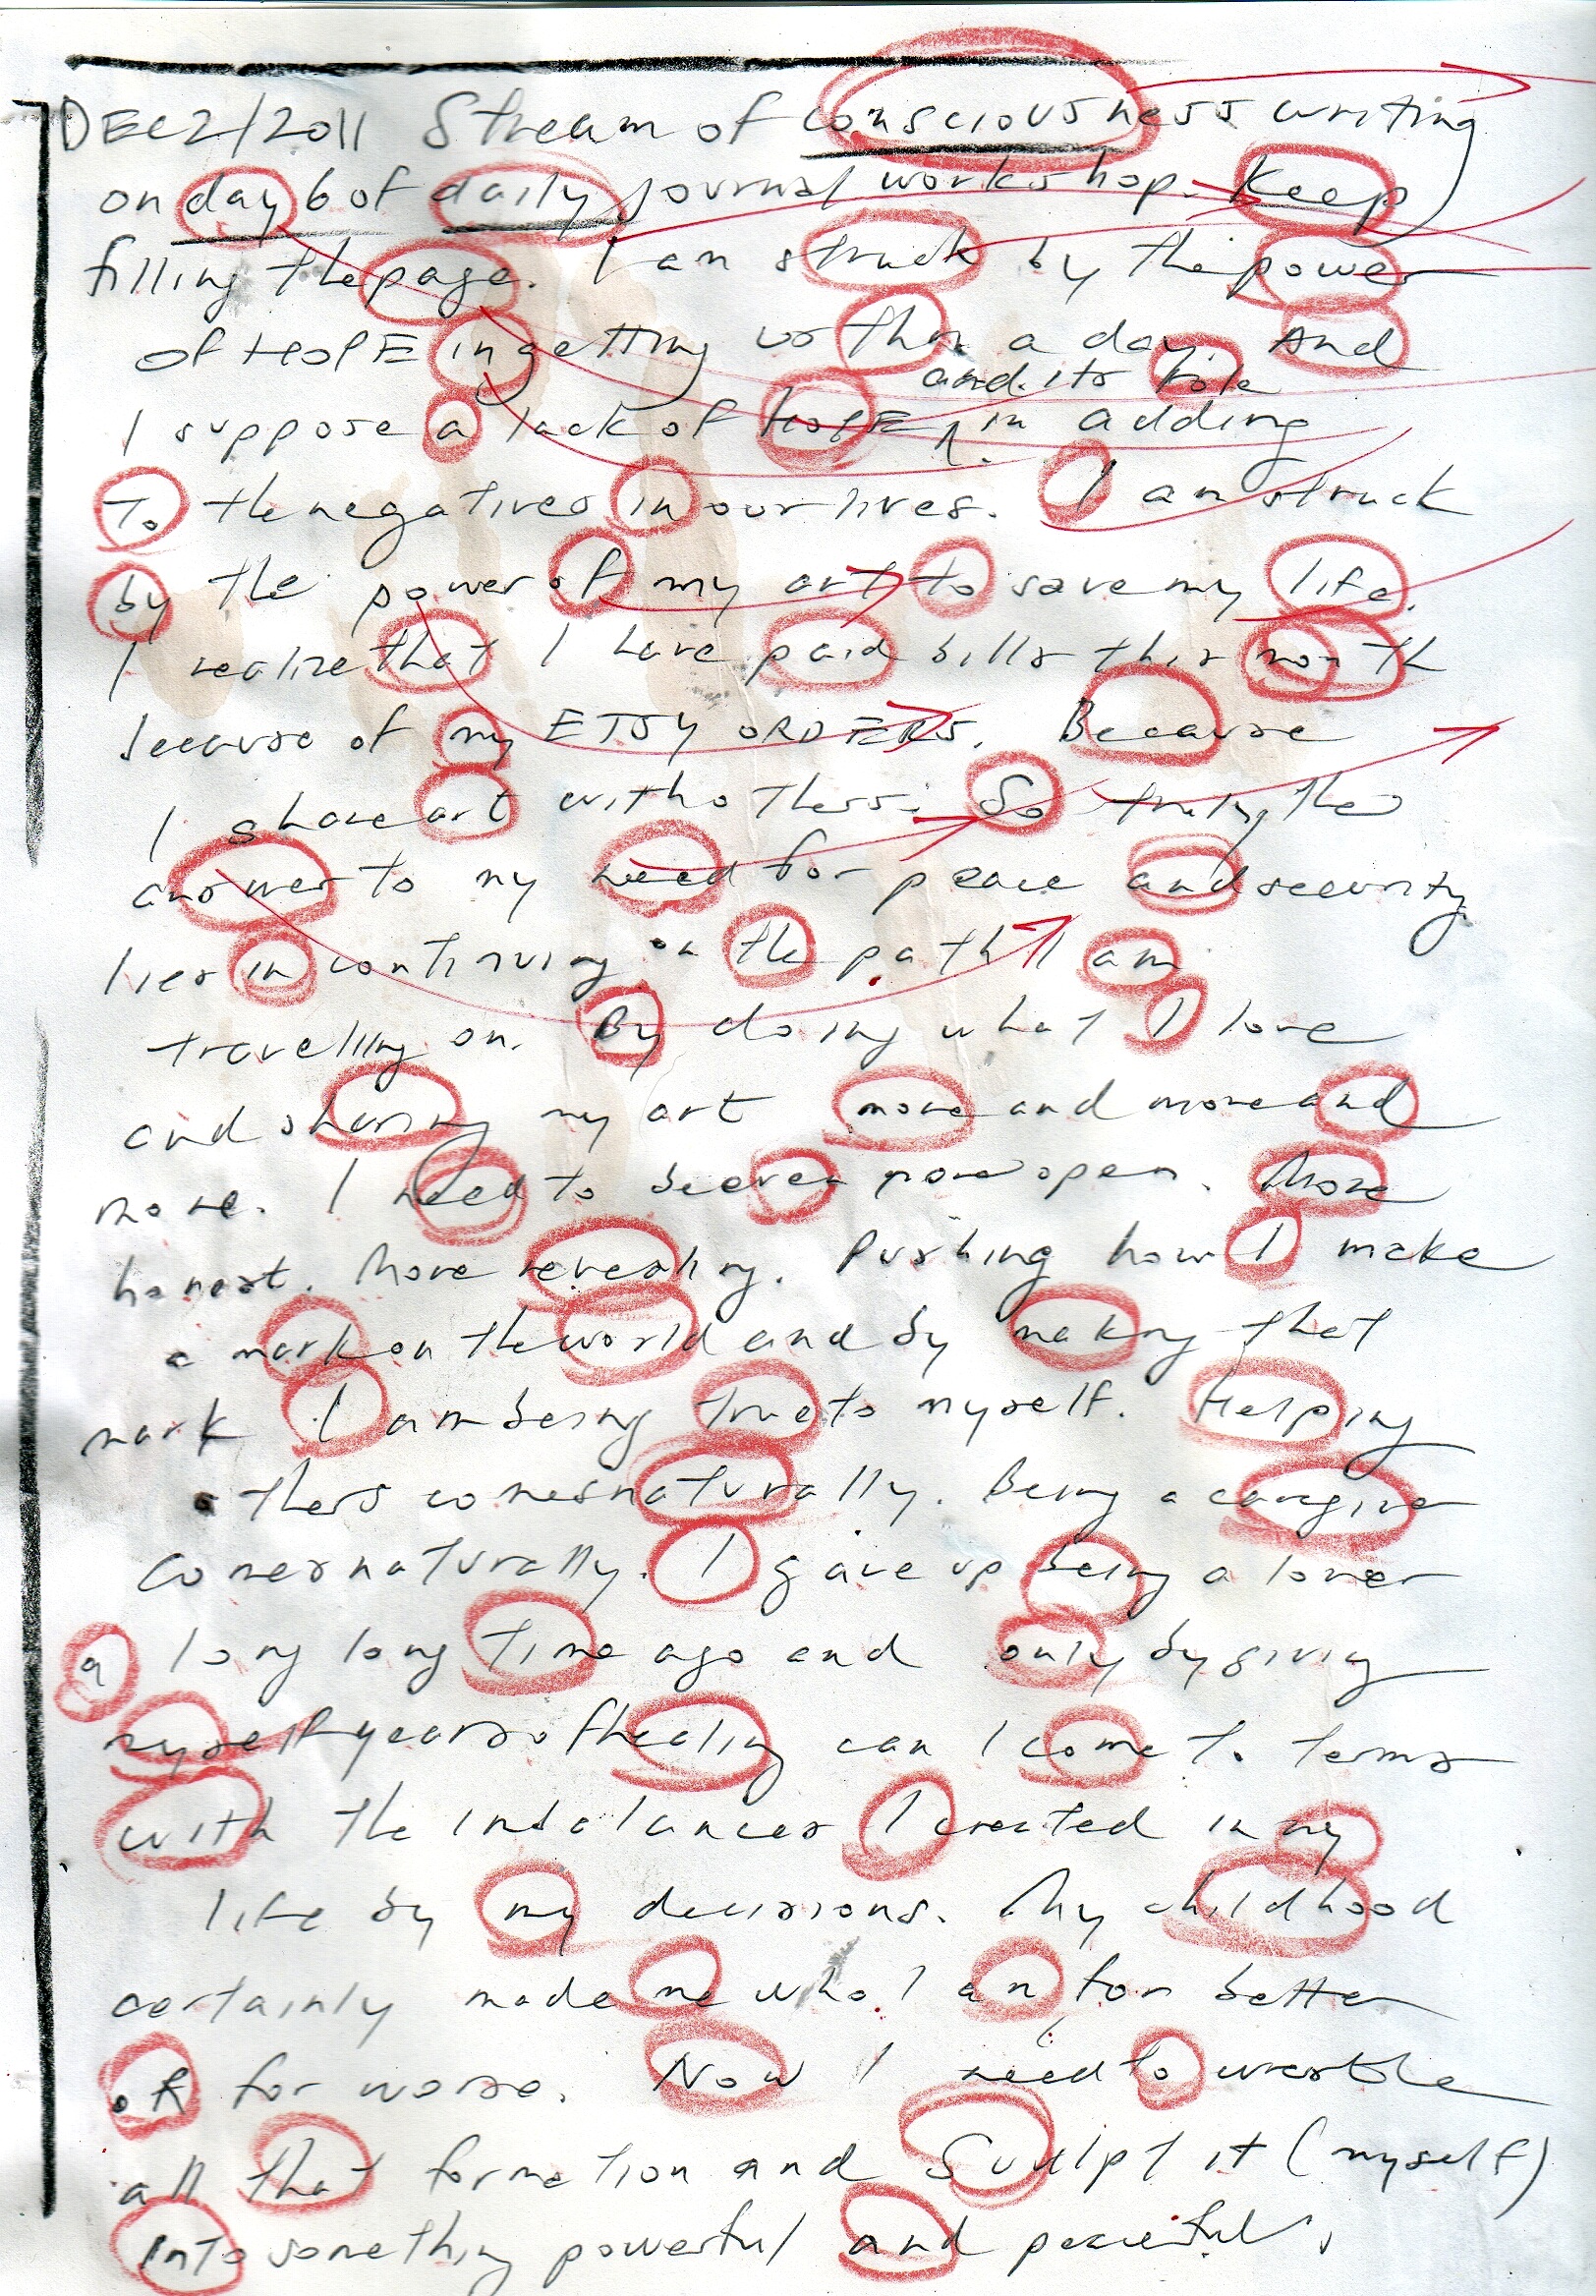 DEC 2/2011 Stream of consciousness writing
on day 6 of daily journal workshop. Keep
filling the page. I am struck by the power
of HOPE in getting us thru a day. And
and its role
I suppose a lack of HOPE in adding
To the negatives in our lives. I am struck
by the power of my art to save my life.
I realize that I have paid bills this month
because of my ETSY ORDERS. Because
I share art with others. So truly, the
answer to my need for peace and security
lies in continuing on the path I am
travelling on. By doing what I love
and sharing my art more and more and
more. I need to be even more open. More
honest. More revealing. Pushing how I make
a mark on the world and by making that
mark I am being true to myself. Helping
others comes naturally. Being a caregiver
comes naturally. I gave up being a lover
a long long time ago and only by giving
myself years of healing can I come to terms
with the imbalances I created in my
life by my decisions. My childhood
certainly made me who I am for better
oR for worse. Now I need to wrestle
all that formation and Sculpt it (myself)
into something powerful and peaceful.